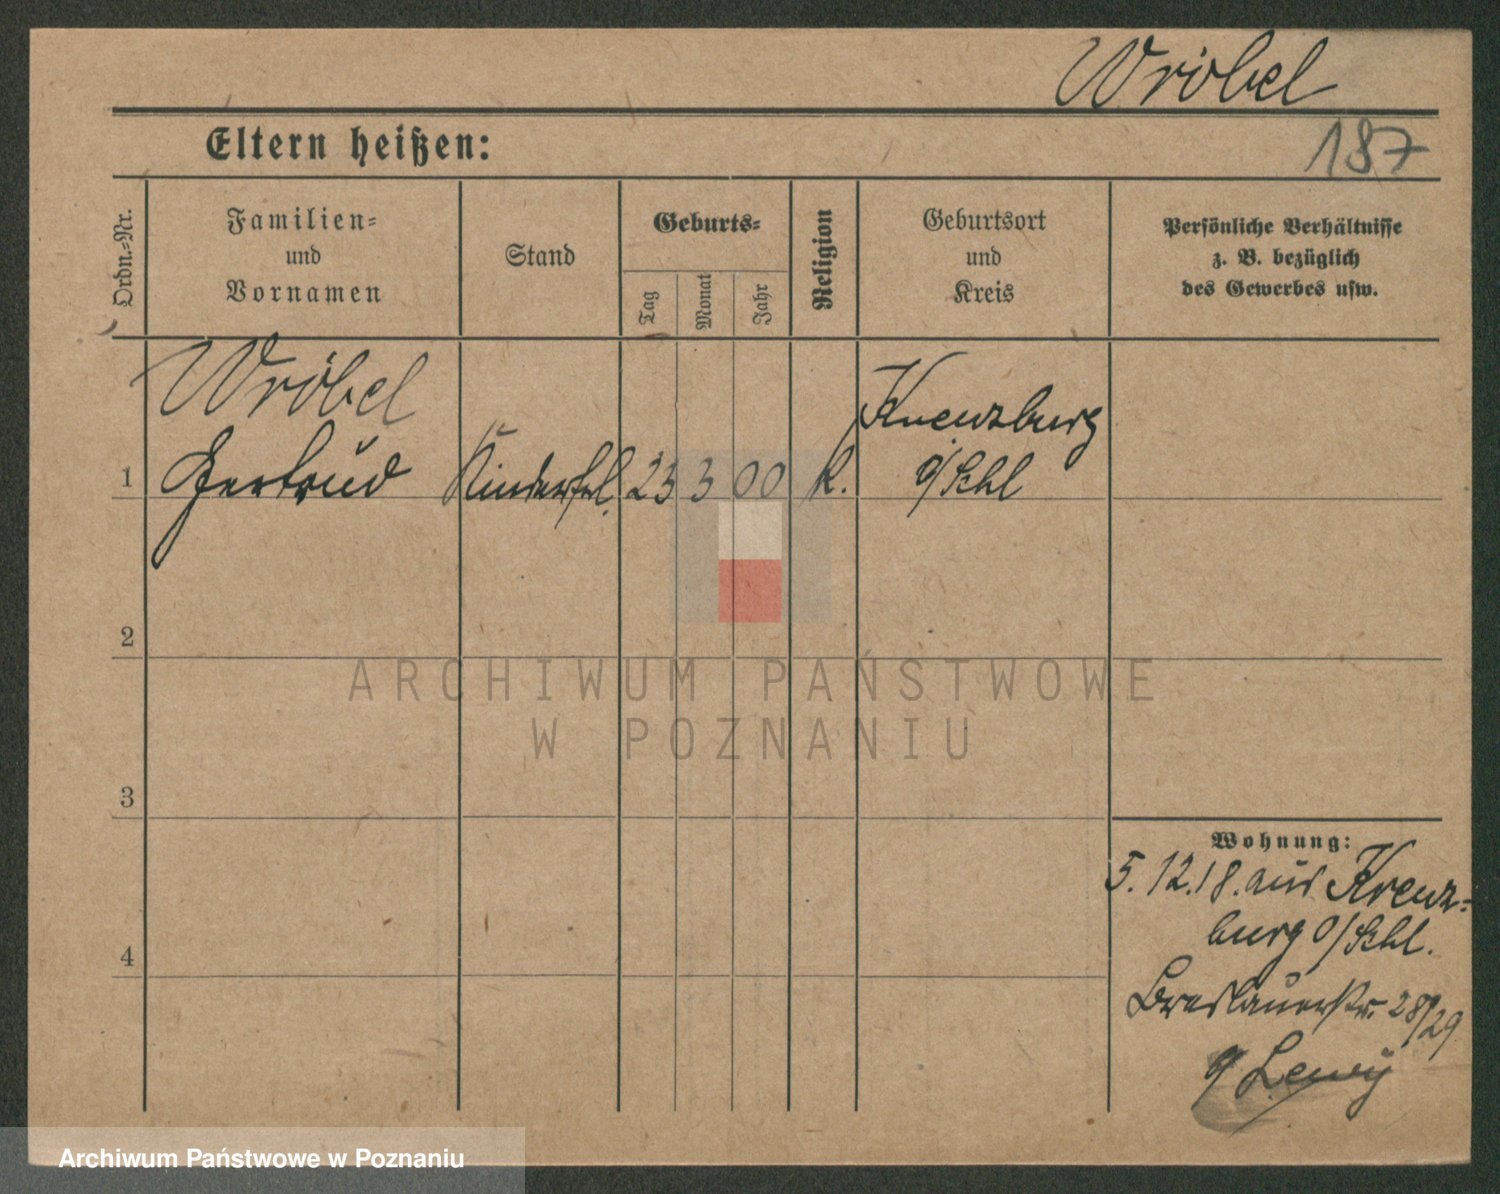 Wróbel
187
Eltern heißen:
Ordn.-Nr.
Familien-
und
Vornamen
Stand
Geburts-
Tag
Monat
Jahr
Religion
Geburtsort
und
Kreis
Persönliche Verhältnisse
z. B. bezüglich
des Gewerbes usw.
Wróbel
Kreuzburg
1 Gertrud Kinderfrl. 23 3 00 k. O/Schl
2
3
4
Wohnung:
5.12.18. aus Kreuz-
burg O/Schl.
Breslauerstr. 28/29
b/ Lewy
ARCHIWUM PAŃSTWOWE
W POZNANIU
Archiwum Państwowe w Poznaniu